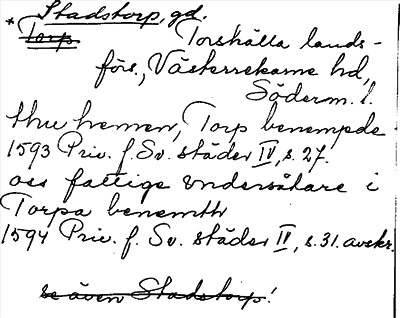 * Stadstorp, gd.
Torp Torshälla lands-
förs., Västerrekarne hd,
Söderm. l.
thu hemen, Torp benempde
1593 Priv. f. Sv. städer IV, s. 27.
oss fattige vndersåtare i
Torpa benemth
1594 Priv. f. Sv. städer II, s. 31. avskr.
se även Stadstorp!